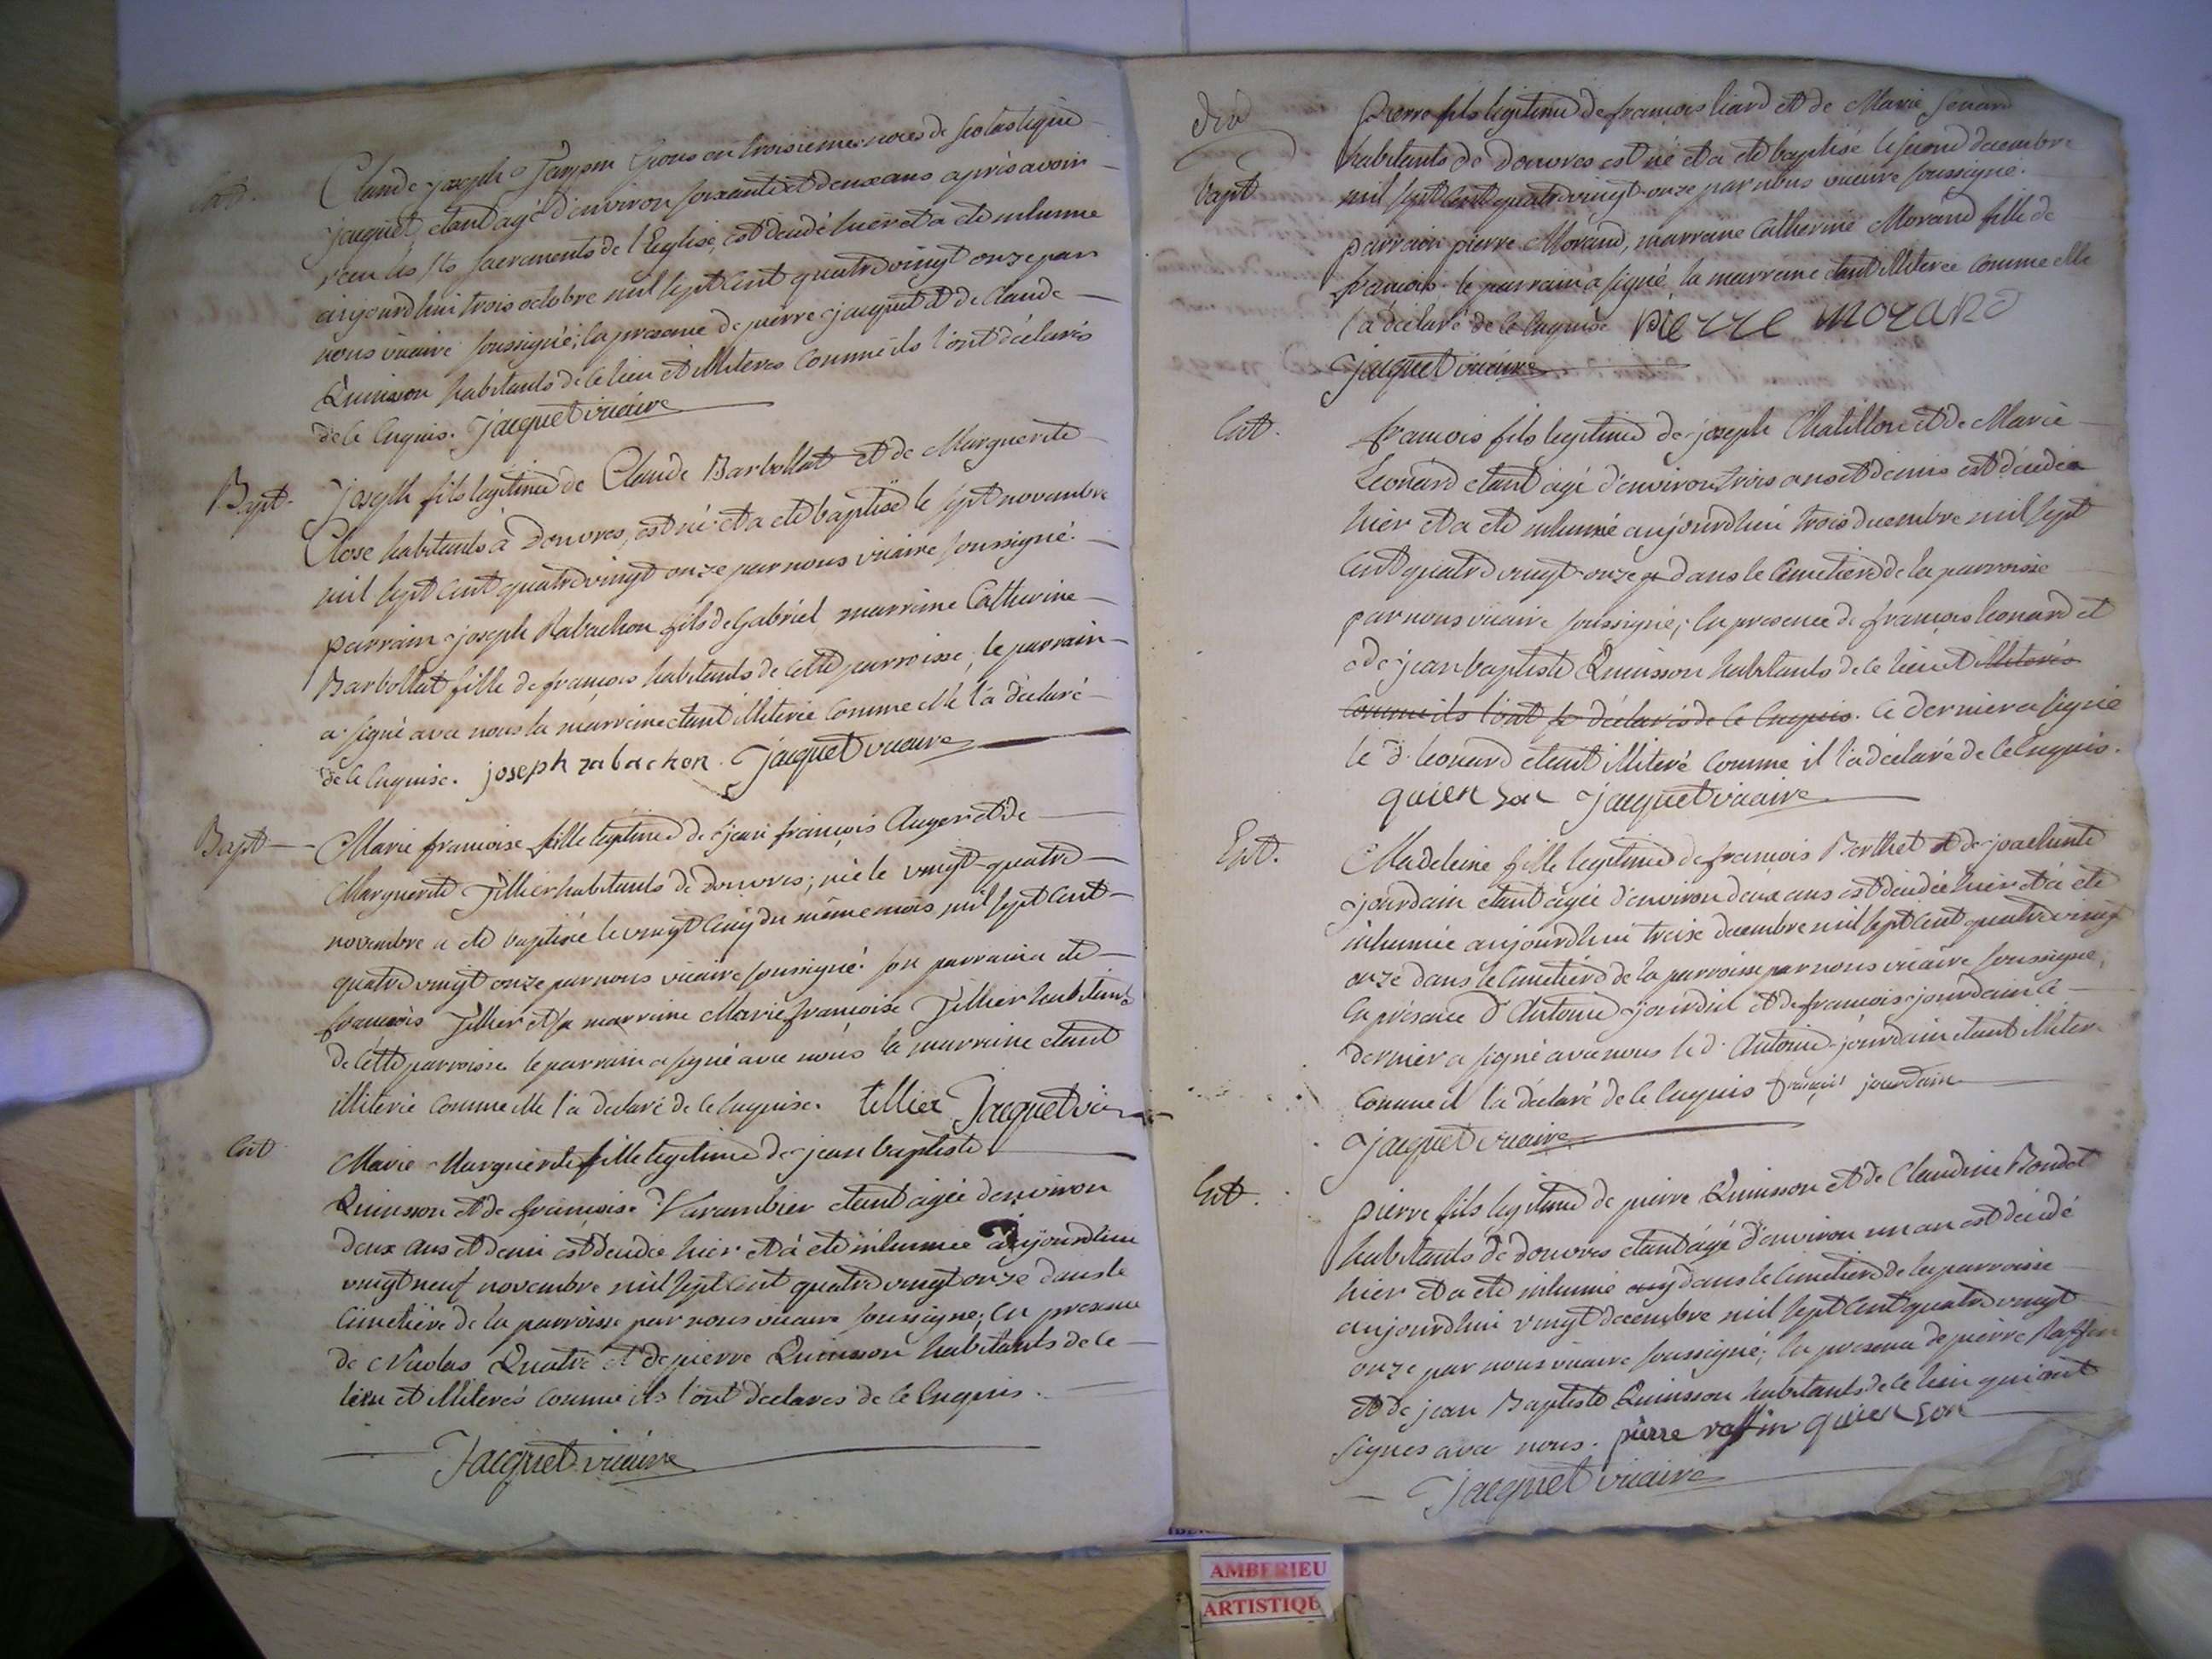 Ent.
Claude joseph Jayson Grous en troisiemes noces de scolastique
jacquet, etant agé d'environ soixante et deux ans après avoir
recu les sts sacrements de l'Eglise, est décédé hier et a eté inhumé
aujourdhui trois octobre mil sept cent quatre vingt onze par
nous vicaire soussigné; en presence de pierre jacquet et de Claude
Quinson habitants de ce lieu et illiterés comme ils l'ont déclarés
de ce Enquis. Jacquet vicaire
Bapt.
joseph fils legitime de Claude Barbollat et de Marguerite
Close habitants à Douvres, est né et a eté baptisé le sept novembre
mil sept cent quatre vingt onze par nous vicaire soussigné.
parrain joseph Rabachon fils de Gabriel marraine Catherine
Barbollat fille de françois habitants de cette parroisse, le parrain
a signé avec nous la marraine etant illiterée comme elle l'a déclaré
de ce enquise. joseph rabachon. Jacquet vicaire
Bapt
Marie francoise fille legitime de jean françois Auger et de
Marguerite Tillier habitants de Douvres; née le vingt-quatre
novembre a eté baptisée le vingt cinq du même mois mil sept cent
quatre vingt onze par nous vicaire soussigné. son parrain a eté
francois Tillier et sa marraine Marie francoise Tillier habitants
de cette parroisse le parrain a signé avec nous la marraine etant
illiterée comme elle l'a declaré de ce enquise. tillier Jacquet vic
Ent
Marie Marguerite fille legitime de jean baptiste
Quinson et de françoise Varambier etant agée d'environ
deux ans et demi est décédée hier et a eté inhumée aujourdhui
vingt neuf novembre mil sept cent quatre vingt onze dans le
Cimetière de la parroisse par nous vicaire soussigné, en presence
de Nicolas Quatre et de pierre Quinson habitants de ce
lieu et illiterés comme ils l'ont déclarés de ce Enquis.
Jacquet vicaire
Bapt
Pierre fils legitime de françois liard et de Marie
habitants de Douvres est né et a eté baptisé le second decembre
mil sept cent quatre vingt-onze par nous vicaire soussigné.
parrain pierre Morand, marraine Catherine Morand fille de
francois. le parrain a signé, la marraine etant illiterée comme elle
l'a déclaré de ce enquise PIERRE MORAND
Jacquet vicaire
Ent.
francois fils legitime de joseph Chatillon et de Marie
Leonard etant agé d'environ trois ans et demis est décédé
hier et a eté inhumé aujourdhui trois decembre mil sept
cent quatre vingt-onze dans le Cimetiere de la parroisse
par nous vicaire soussigné; en presence de françois leonard et
de jean baptiste Quinson habitants de ce lieu et illiterés
comme ils l'ont déclarés de ce enquis. Ce dernier a signé
le d. leonard etant illiteré comme il l'a déclaré de ce enquis.
quienson Jacquet vicaire
Ent.
Madeleine fille legitime de françois Berthet et de joachinte
jourdain etant agée d'environ deux ans est décédée hier et a eté
inhumée aujourdhui treize decembre mil sept cent quatre vingt
onze dans le Cimetiere de la parroisse par nous vicaire soussigné,
En présence d'Antoine jourdin et de francois jourdain ce
dernier a signé avec nous le d. Antoine jourdain etant illiter
comme il l'a déclaré de ce enquis françois jourdain
Jacquet vicaire
Ent.
pierre fils legitime de pierre Quinson et de Claudine Bondet
habitants de douvres etant agé d'environ un an est décédé
hier et a eté inhumé dans le Cimetiere de la parroisse
aujourdhui vingt decembre mil sept cent quatre vingt
onze par nous vicaire soussigné; en presence de pierre Raffin
et de jean Baptiste Quinson habitants de ce lieu qui ont
signés avec nous. pierre raffin quienson
Jacquet vicaire
AMBERIEU
ARTISTIQUE